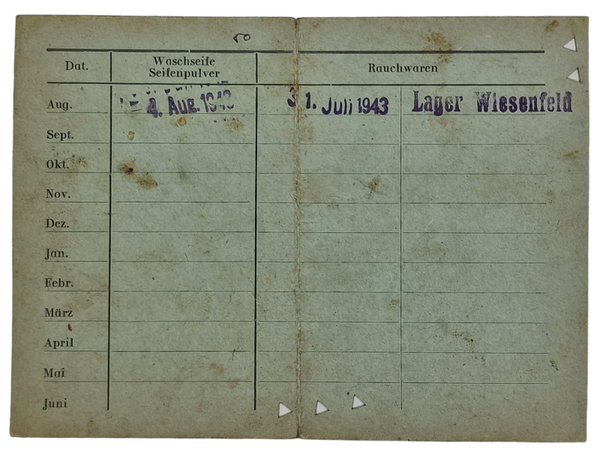 50
Dat. Waschseife Seifenpulver Rauchwaren
Aug. 4. Aug. 1943 31. Juli 1943 Lager Wiesenfeld
Sept.
Okt.
Nov.
Dez.
Jan.
Febr.
März
April
Mai
Juni